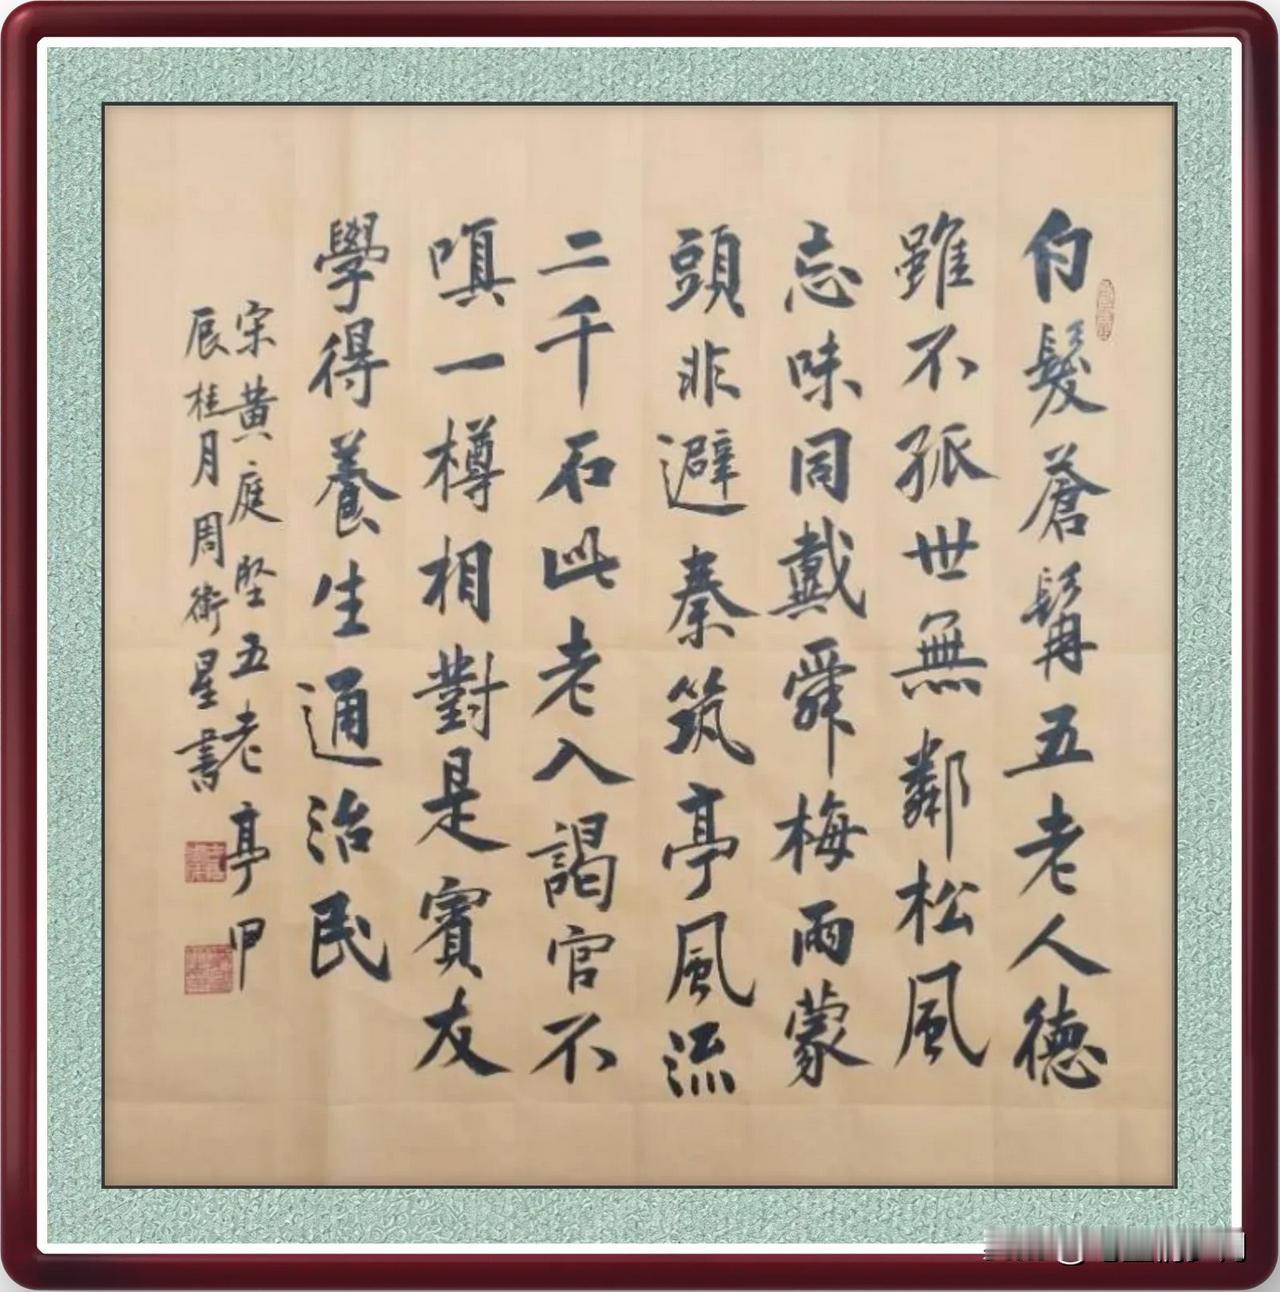 白髮蒼髯五老人德
雖不孤世無鄰松風
忘味同戴舜梅雨蒙
頭非避秦筑亭風流
二千石此老入謁官不
嗔一樽相對是賓友
學得養生通治民
宋黄庭堅五老亭甲
辰桂月周衛星書